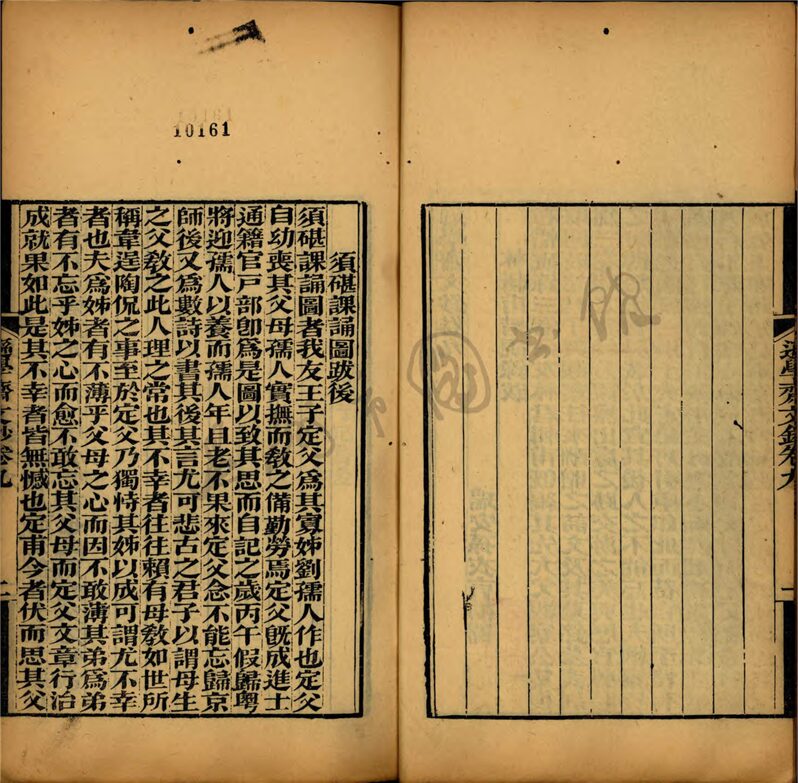 遜學齋文鈔卷九
一
10161
須碪課誦圖跋後
須碪課誦圖者我友王子定父爲其寡姊劉孺人作也定父
自幼喪其父母孺人實撫而敎之備勤勞焉定父旣成進士
通籍官戸部卽爲是圖以致其思而自記之歲丙午假歸粵
將迎孺人以養而孺人年且老不果來定父念不能忘歸京
師後又爲數詩以書其後其言尤可悲古之君子以謂母生
之父敎之此人理之常也其不幸者往往賴有母敎如世所
稱韋逞陶侃之事至於定父乃獨恃其姊以成可謂尤不幸
者也夫爲姊者有不薄乎父母之心而因不敢薄其弟爲弟
者有不忘乎姊之心而愈不敢忘其父母而定父文章行治
成就果如此是其不幸者皆無憾也定甫今者伏而思其父
遜學齋文鈔卷九
二